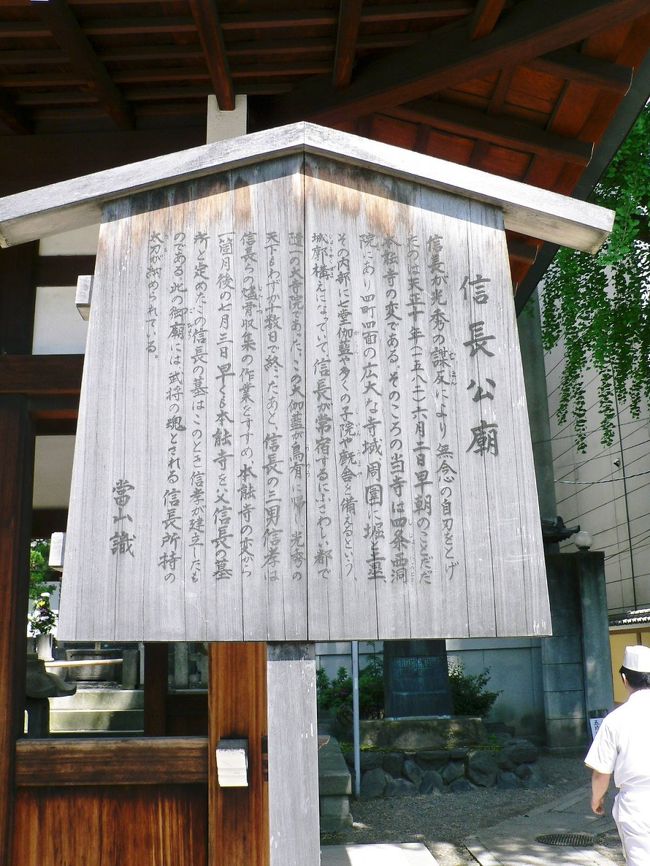 信長公廟
信長が光秀の謀反により無念の自刃をとげ
たのは天正十年(一五八二)六月二日早朝のことだ
本能寺の変である そのころの当寺は四条西洞
院にあり四町四面の広大な寺域周囲に堀と土塁
その内部に七堂伽藍や多くの子院や厩舎を備えるという、
城廓構えになっていて信長が常宿するにふさわしい都で
随一の大寺院であった、この大伽藍が烏有に帰し 光秀の
天下もわずか十数日で終ったあと、信長の三男信孝は
信長らの遺骨収集の作業をすすめ本能寺の変から
一箇月後の七月三日早くも本能寺を父信長の墓
所と定めた、この信長の墓はこのとき信孝が建立したも
のである 此の御廟には武将の魂とされる信長所持の
太刀が納められている。
當山識